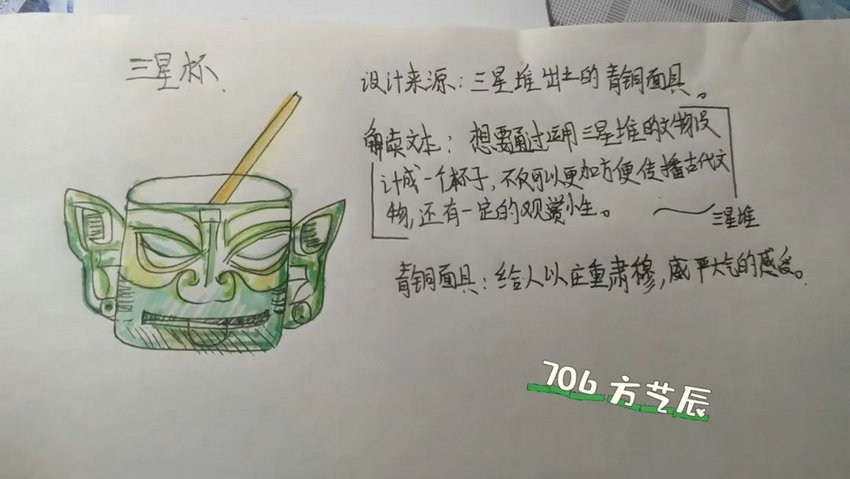 三星杯
设计来源：三星堆出土的青铜面具。
解读文本：想要通过运用三星堆的文物设
计成一个杯子，不仅可以更加方便传播古代文
物，还有一定的观赏性。
三星堆
青铜面具：给人以庄重肃穆，威严大气的感受。
706 方艺辰